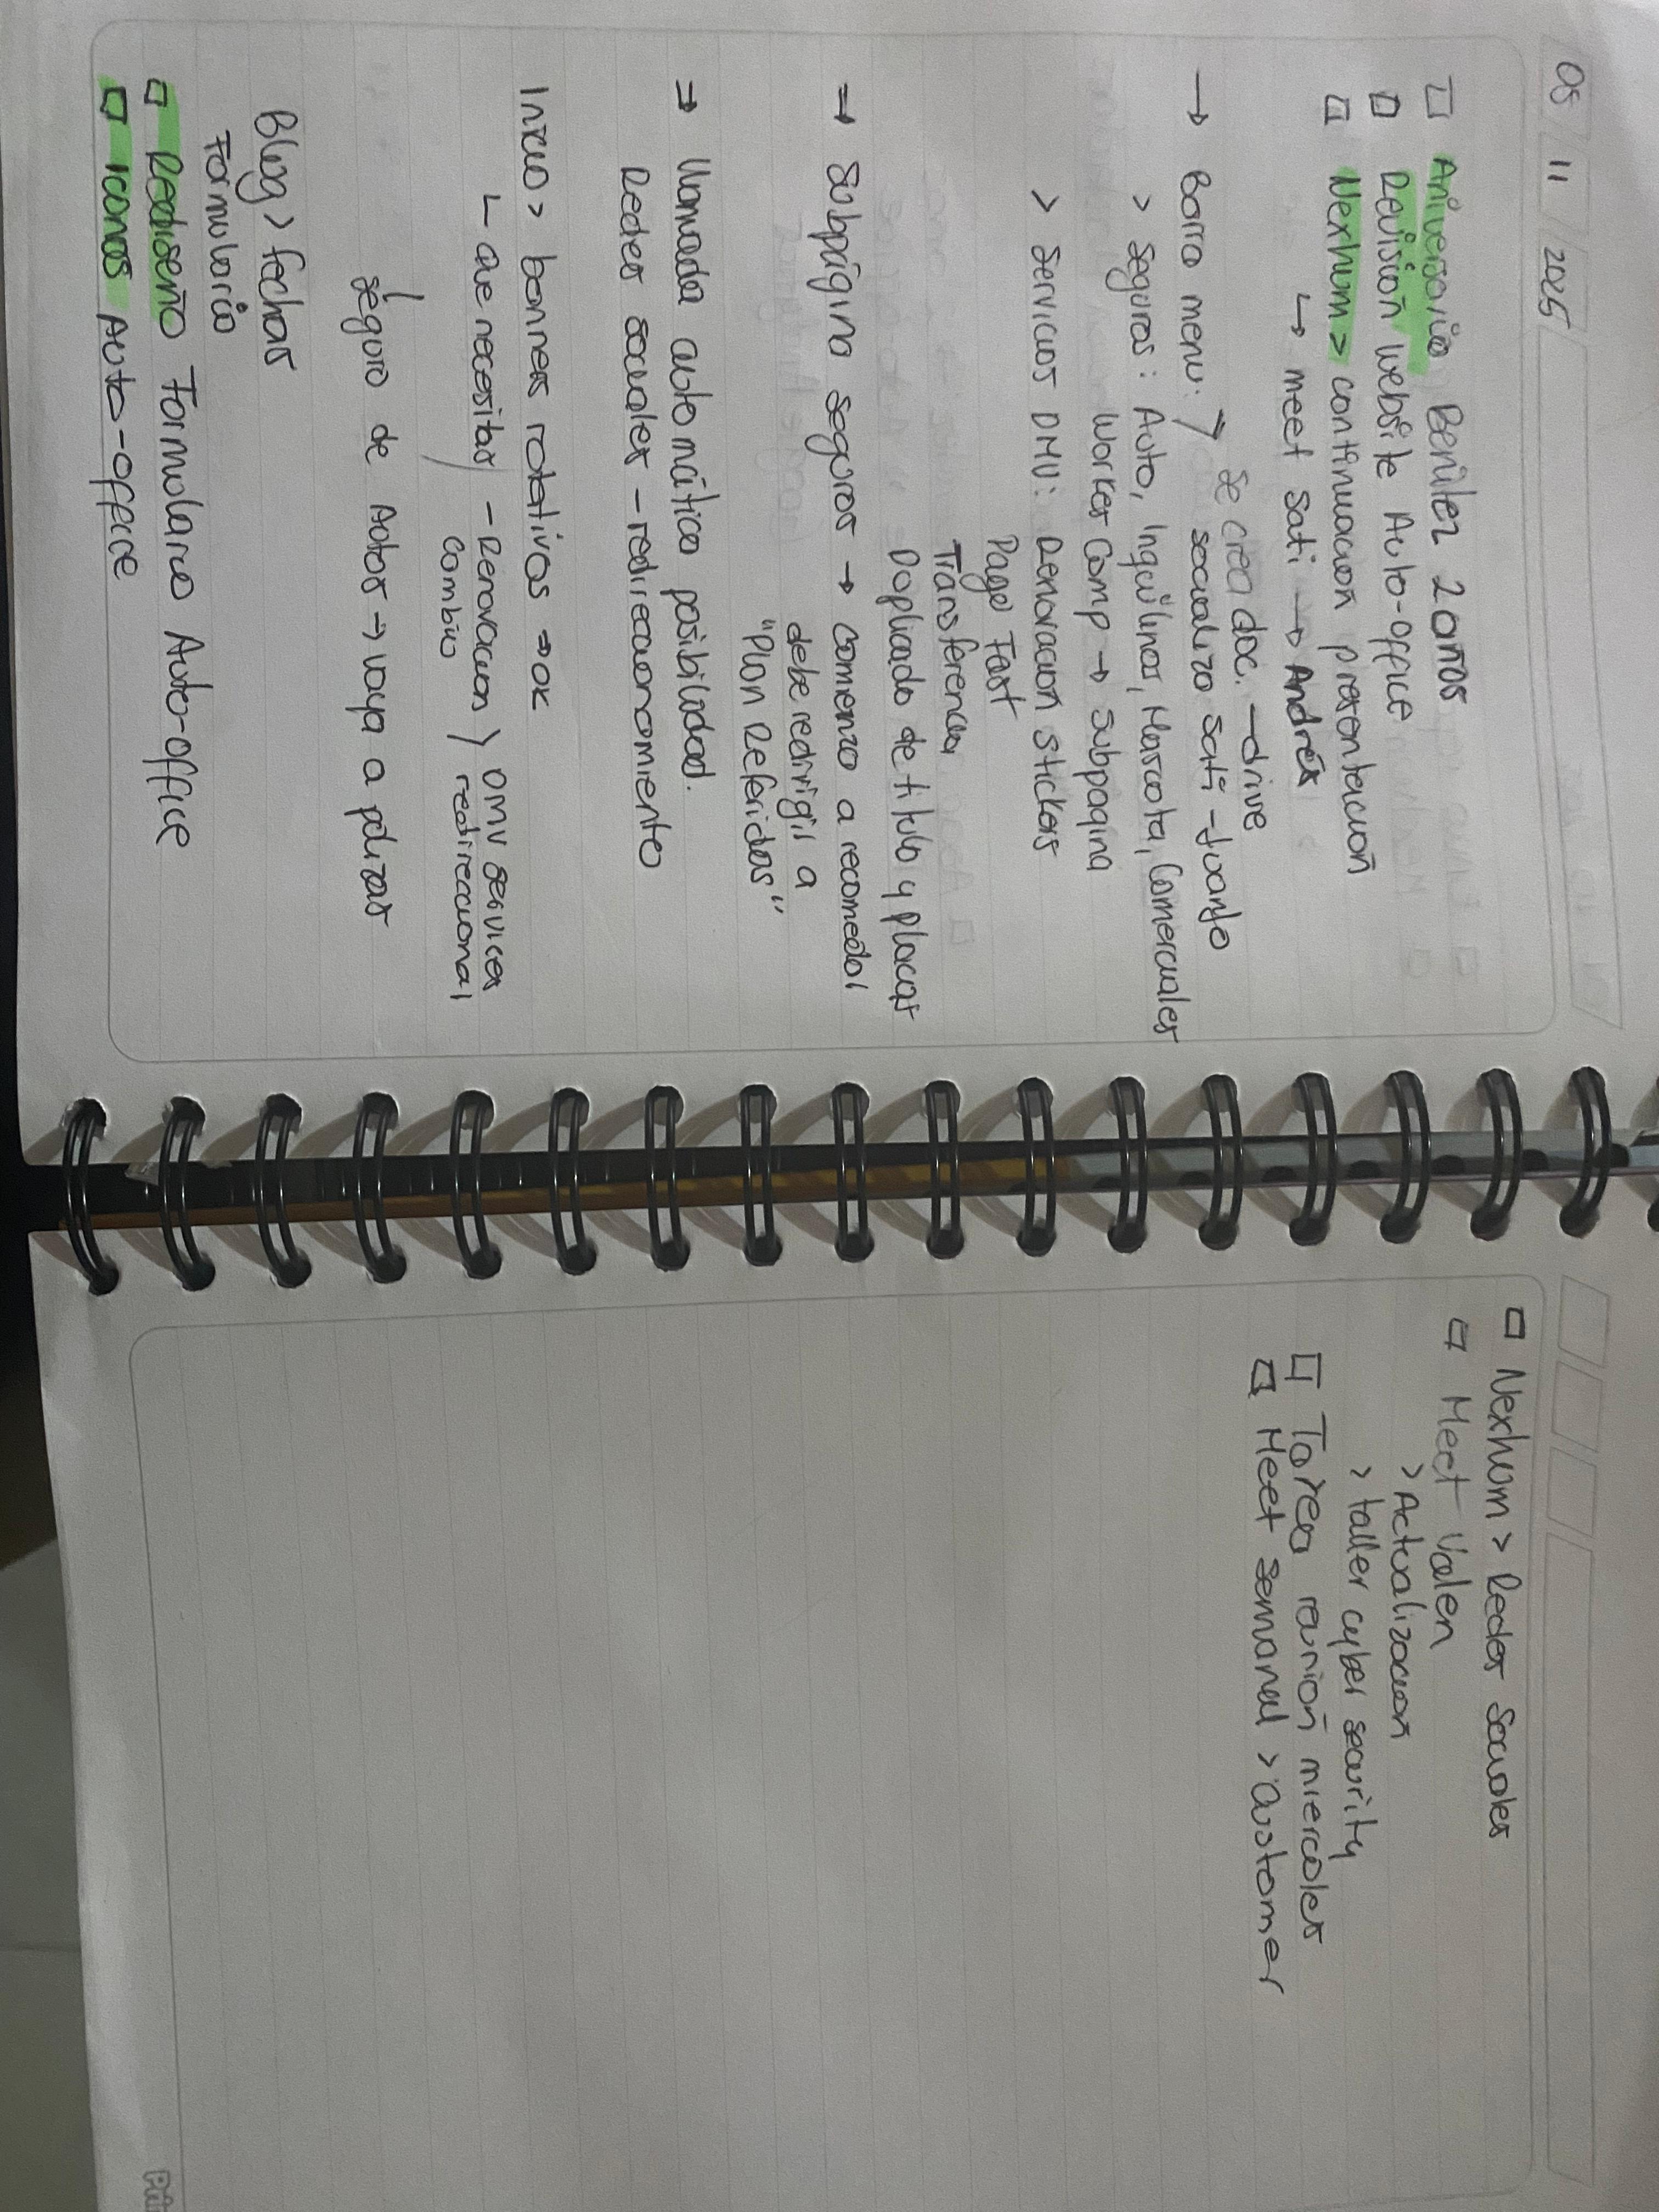 05 11 2025
Aniversario Benitez 2 años
Revisión website Auto-office
Nexhum > continuación presentación
↳ meet Sati → Andrés
se crea doc. → drive
→ Barra menu: socializo Sati - Juanjo
> Seguros: Auto, Inquilinos, Mascota, Comerciales
Worker Comp → Subpagina
> Servicios DMV: Renovación stickers
Pago Fast
Transferencia
Duplicado de titulo y placas
→ Subpágina seguros → Comienzo a recomedar
debe redirigir a
"Plan Referidos"
→ llamada automático posibilidad.
Redes sociales - redireccionamiento
Inicio > banners rotativos → ok
↳ que necesitas - Renovación } DMV services
Cambio redireccional
Seguro de Autos → vaya a polizas
Blog > fechas
Formulario
Rediseño Formulario Auto-office
Iconos Auto-office
Nexhum > Redes Sociales
Meet Valen
> Actualización
> taller cyber security
Tarea reunión miercoles
Meet semanal > Customer
Pri